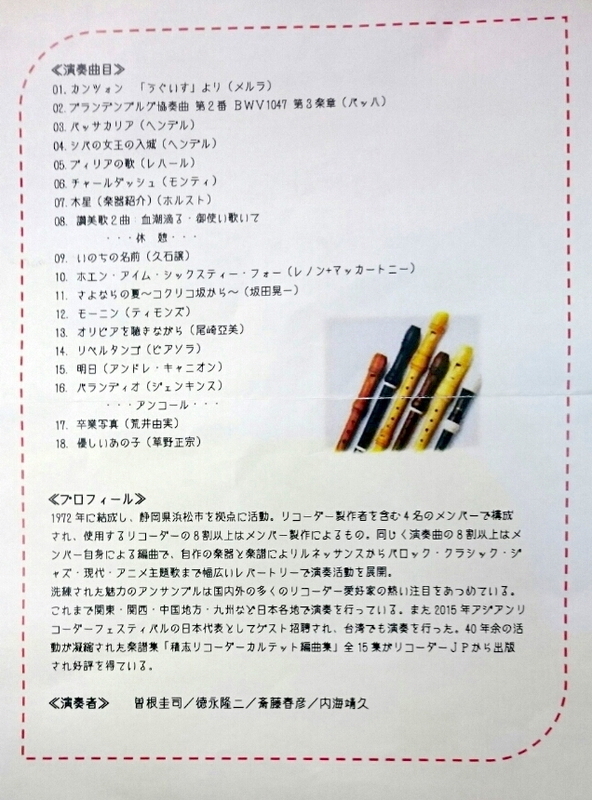 ≪演奏曲目≫
01. カンツォン 「うぐいす」より（メルラ）
02. ブランデンブルグ協奏曲 第2番 BWV1047 第3楽章（バッハ）
03. パッサカリア（ヘンデル）
04. シバの女王の入城（ヘンデル）
05. ヴィリアの歌（レハール）
06. チャールダッシュ（モンティ）
07. 木星（楽器紹介）（ホルスト）
08. 讃美歌2曲：血潮滴る・御使い歌いて
・・・休 憩・・・
09. いのちの名前（久石譲）
10. ホエン・アイム・シックスティー・フォー（レノン+マッカートニー）
11. さよならの夏～コクリコ坂から～（坂田晃一）
12. モーニン（ティモンズ）
13. オリビアを聴きながら（尾崎亜美）
14. リベルタンゴ（ピアソラ）
15. 明日（アンドレ・ギャニオン）
16. パラディオ（ジェンキンス）
・・・アンコール・・・
17. 卒業写真（荒井由実）
18. 優しいあの子（草野正宗）
≪プロフィール≫
1972年に結成し、静岡県浜松市を拠点に活動。リコーダー製作者を含む4名のメンバーで構成
され、使用するリコーダーの8割以上はメンバー製作によるもの。同じく演奏曲の8割以上はメ
ンバー自身による編曲で、自作の楽器と楽譜によりルネッサンスからバロック・クラシック・ジ
ャズ・現代・アニメ主題歌まで幅広いレパートリーで演奏活動を展開。
洗練された魅力のアンサンブルは国内外の多くのリコーダー愛好家の熱い注目をあつめている。
これまで関東・関西・中国地方・九州など日本各地で演奏を行っている。また2015年アジアンリ
コーダーフェスティバルの日本代表としてゲスト招聘され、台湾でも演奏を行った。40年余の活
動が凝縮された楽譜集「積志リコーダーカルテット編曲集」全15集がリコーダーJPから出版
され好評を得ている。
≪演奏者≫ 曽根圭司／徳永隆二／斎藤春彦／内海靖久